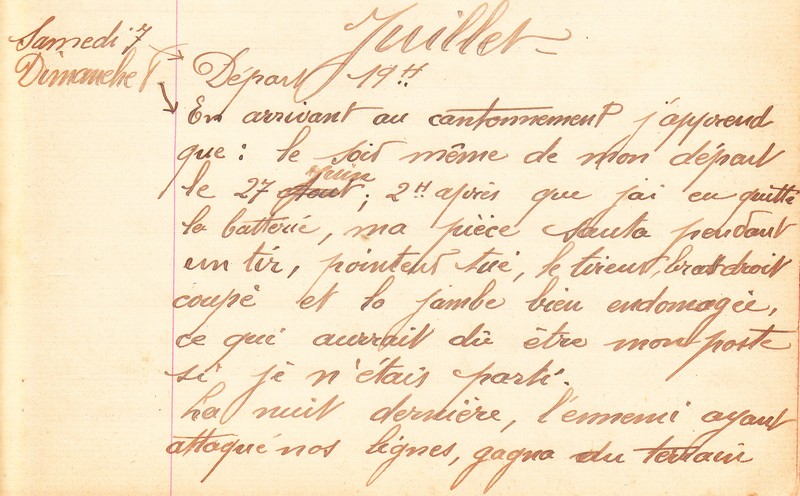 Juillet
Samedi 7
Dimanche 8
Départ 19H
En arrivant au cantonnement j'apprend
que : le soir même de mon départ
le 27 juin ; 2H après que j'ai eu quitté
la batterie, ma pièce sauta pendant
un tir, pointeur tué, le tireur, bras droit
coupé et la jambe bien endomagée,
ce qui aurrait dû être mon poste
si je n'étais parti.
La nuit dernière, l'ennemi ayant
attaqué nos lignes, gagna du terrain